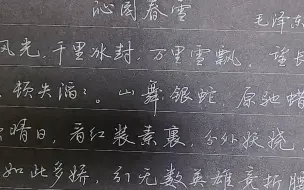 沁园春雪
毛泽东
风光，千里冰封，万里雪飘，望长
顿失滔滔。山舞银蛇，原驰蜡
晴日，看红装素裹，分外妖娆
如此多娇，引无数英雄竞折腰